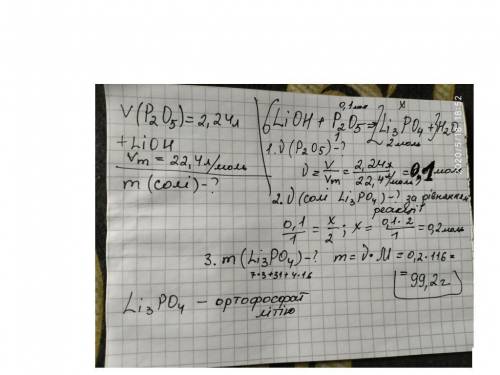 V(P₂O₅)=2,24л
+LiOH
Vm = 22,4л/моль
m(солі)-?
0,1моль x
6LiOH + P₂O₅ = 2Li₃PO₄ + 3H₂O
1 2моль
1. ν(P₂O₅)-?
ν = V/Vm = 2,24л/22,4л/моль = 0,1моль
2. ν(солі Li₃PO₄)-? за рівнянням
реакції
0,1/1 = x/2; x = 0,1·2/1 = 0,2моль
3. m(Li₃PO₄)-? m = ν·M = 0,2·116=
7·3+31+4·16
=99,2г
Li₃PO₄ – ортофосфат
літію